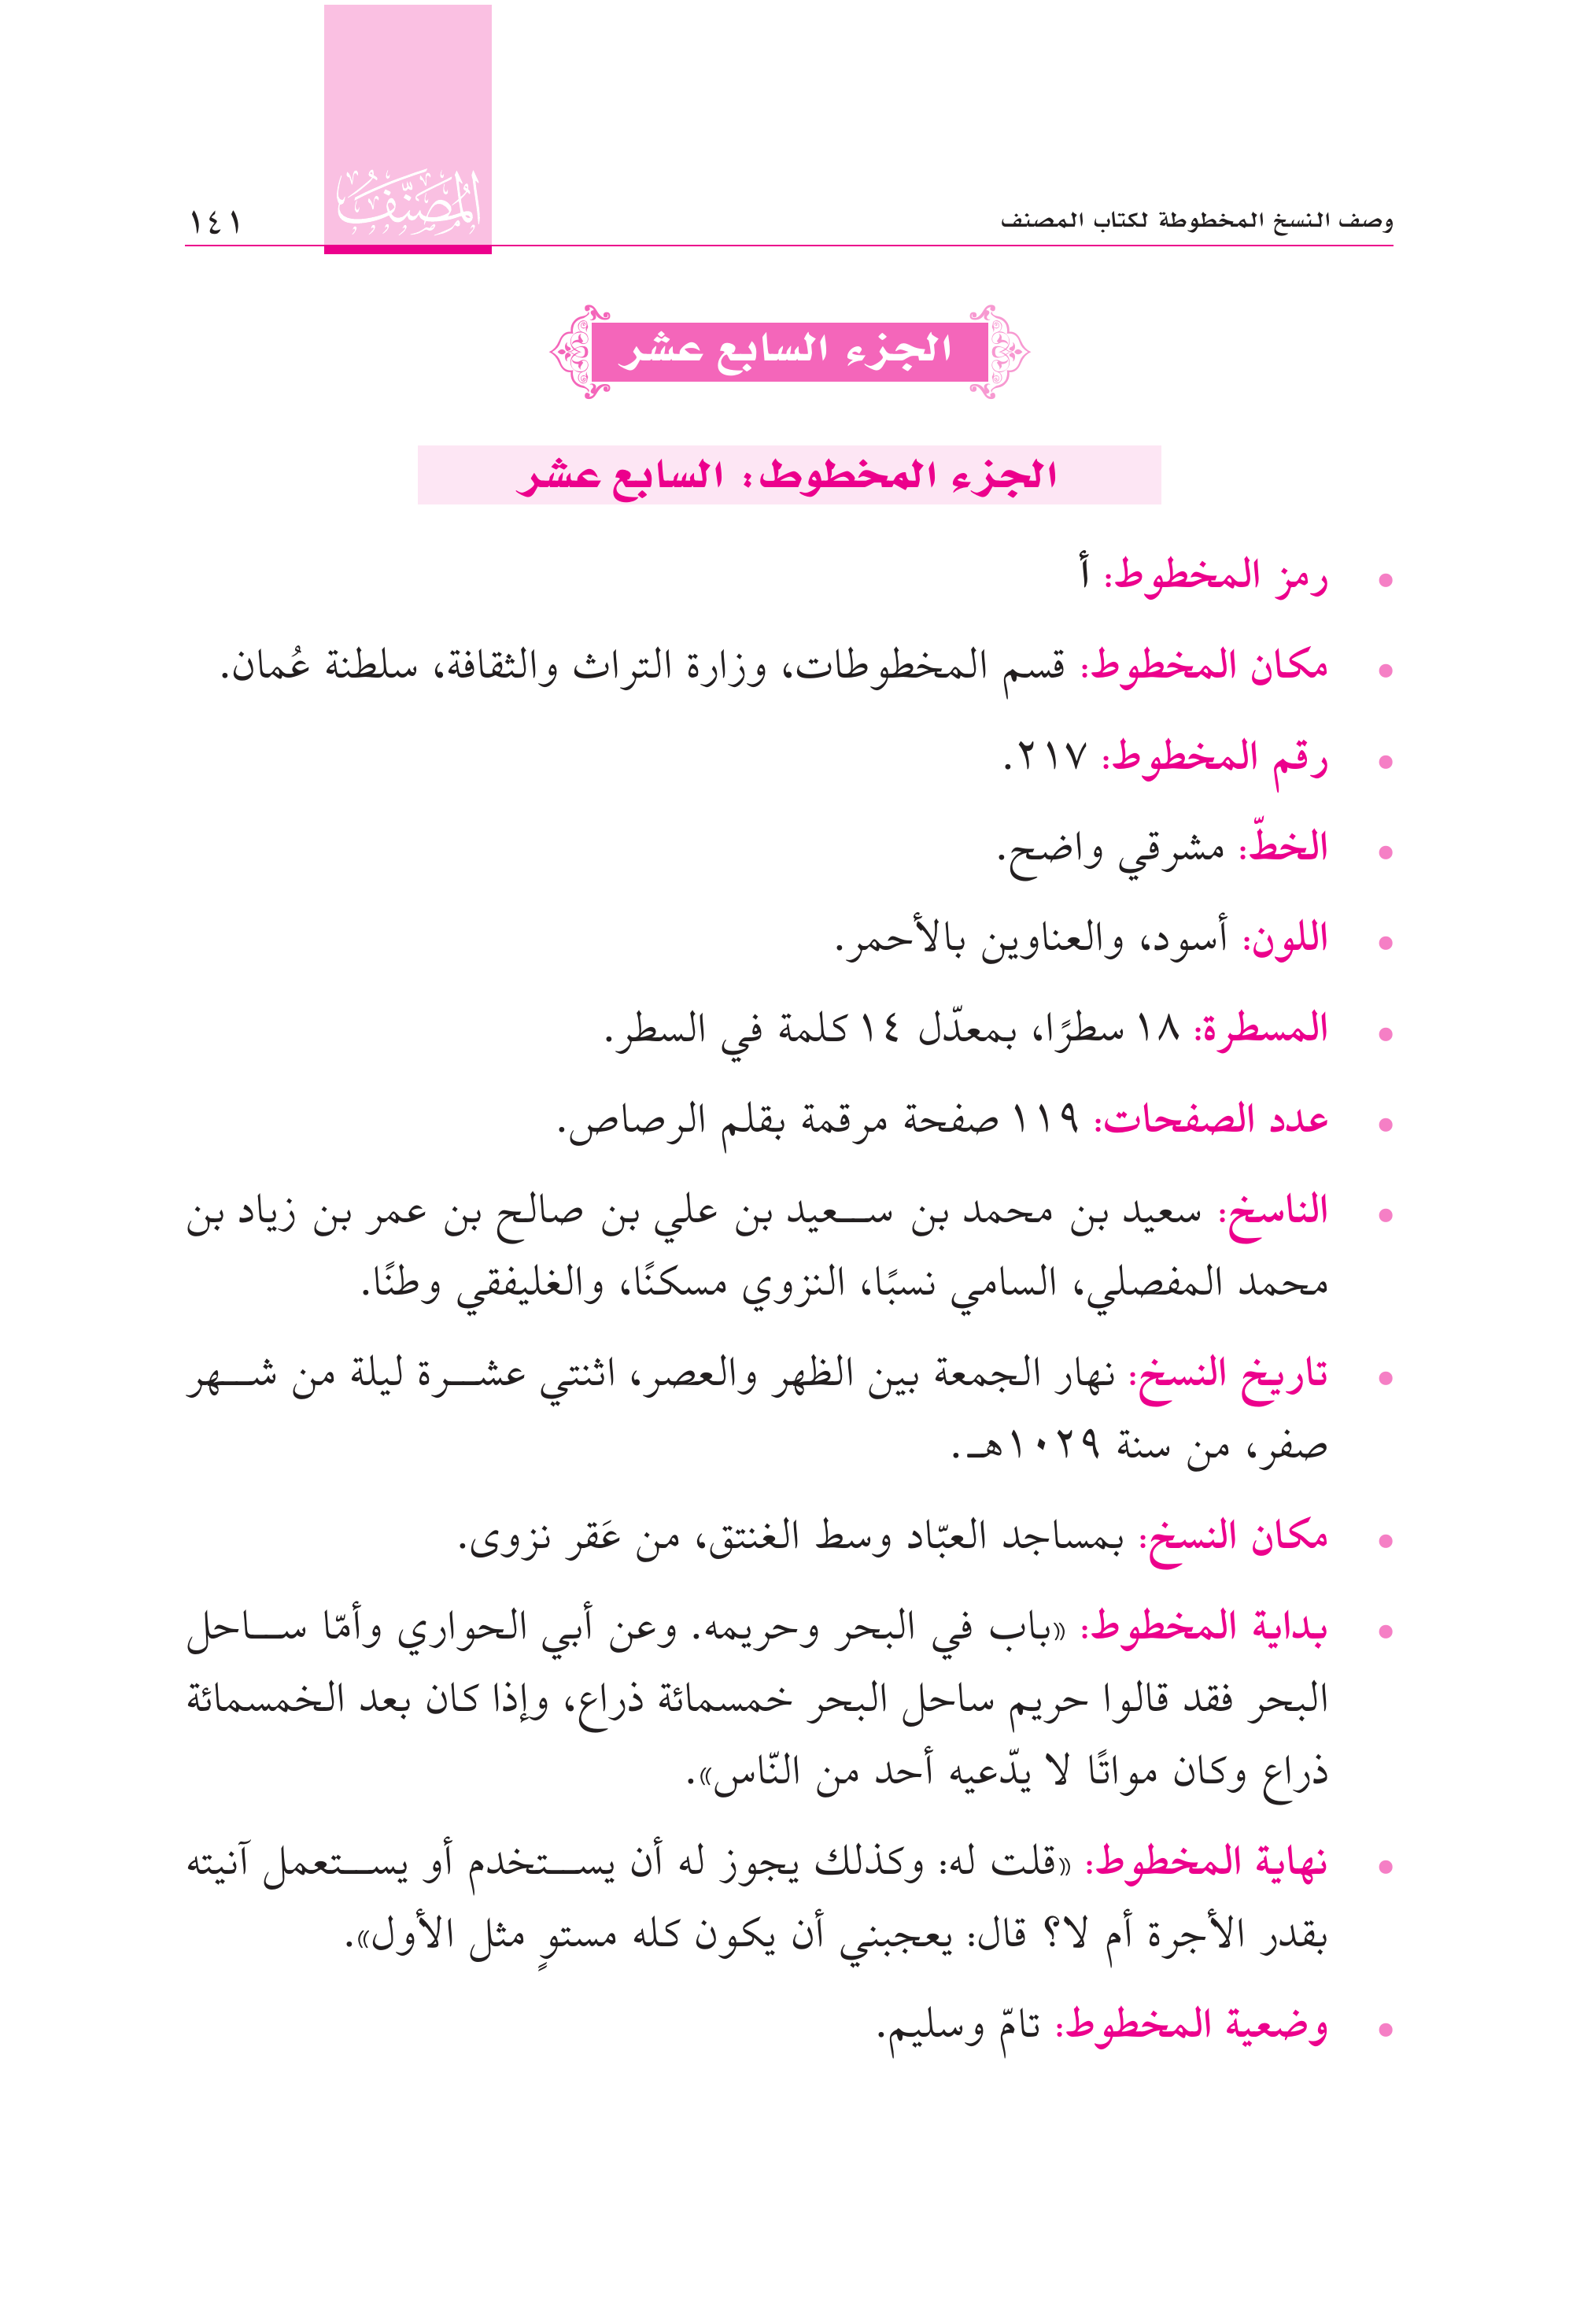 وصف النسخ المخطوطة لكتاب المصنف
المُصَنَّف
١٤١
الجزء السابع عشر
الجزء المخطوط: السابع عشر
• رمز المخطوط: أ
• مكان المخطوط: قسم المخطوطات، وزارة التراث والثقافة، سلطنة عُمان.
• رقم المخطوط: ٢١٧.
• الخطّ: مشرقي واضح.
• اللون: أسود، والعناوين بالأحمر.
• المسطرة: ١٨ سطرًا، بمعدّل ١٤ كلمة في السطر.
• عدد الصفحات: ١١٩ صفحة مرقمة بقلم الرصاص.
• الناسخ: سعيد بن محمد بن سعيد بن علي بن صالح بن عمر بن زياد بن
محمد المفصلي، السامي نسبًا، النزوي مسكنًا، والغليفقي وطنًا.
• تاريخ النسخ: نهار الجمعة بين الظهر والعصر، اثنتي عشرة ليلة من شهر
صفر، من سنة ١٠٢٩هـ.
• مكان النسخ: بمساجد العبّاد وسط الغنتق، من عَقر نزوى.
• بداية المخطوط: «باب في البحر وحريمه. وعن أبي الحواري وأمّا ساحل
البحر فقد قالوا حريم ساحل البحر خمسمائة ذراع، وإذا كان بعد الخمسمائة
ذراع وكان مواتًا لا يدّعيه أحد من النّاس».
• نهاية المخطوط: «قلت له: وكذلك يجوز له أن يستخدم أو يستعمل آنيته
بقدر الأجرة أم لا؟ قال: يعجبني أن يكون كله مستوٍ مثل الأول».
• وضعية المخطوط: تامّ وسليم.